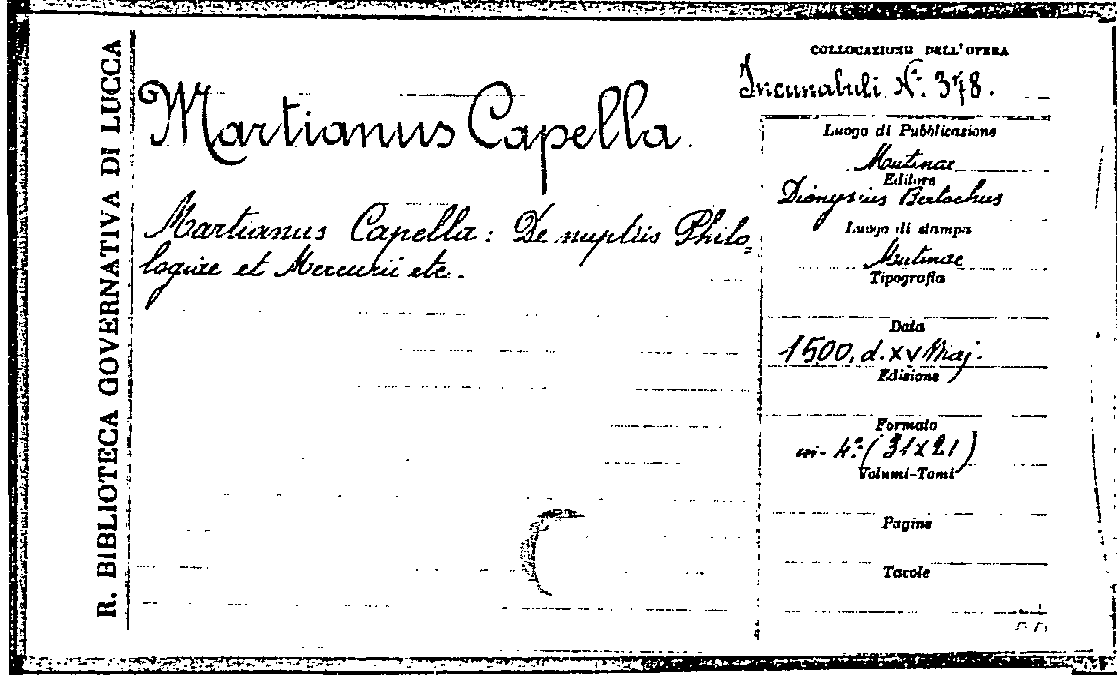 R. BIBLIOTECA GOVERNATIVA DI LUCCA
Martianus Capella.
Martianus Capella: De nuptiis Philo=
logiae et Mercurii etc.
COLLOCAZIONE DELL'OPERA
Incunabuli N.º 378.
Luogo di Pubblicazione
Mutinae
Editore
Dionysius Bertochus
Luogo di stampa
Mutinae
Tipografia
Data
1500, d. XV Maj.
Edizione
Formato
in-4º (31x21)
Volumi-Tomi
Pagine
Tavole